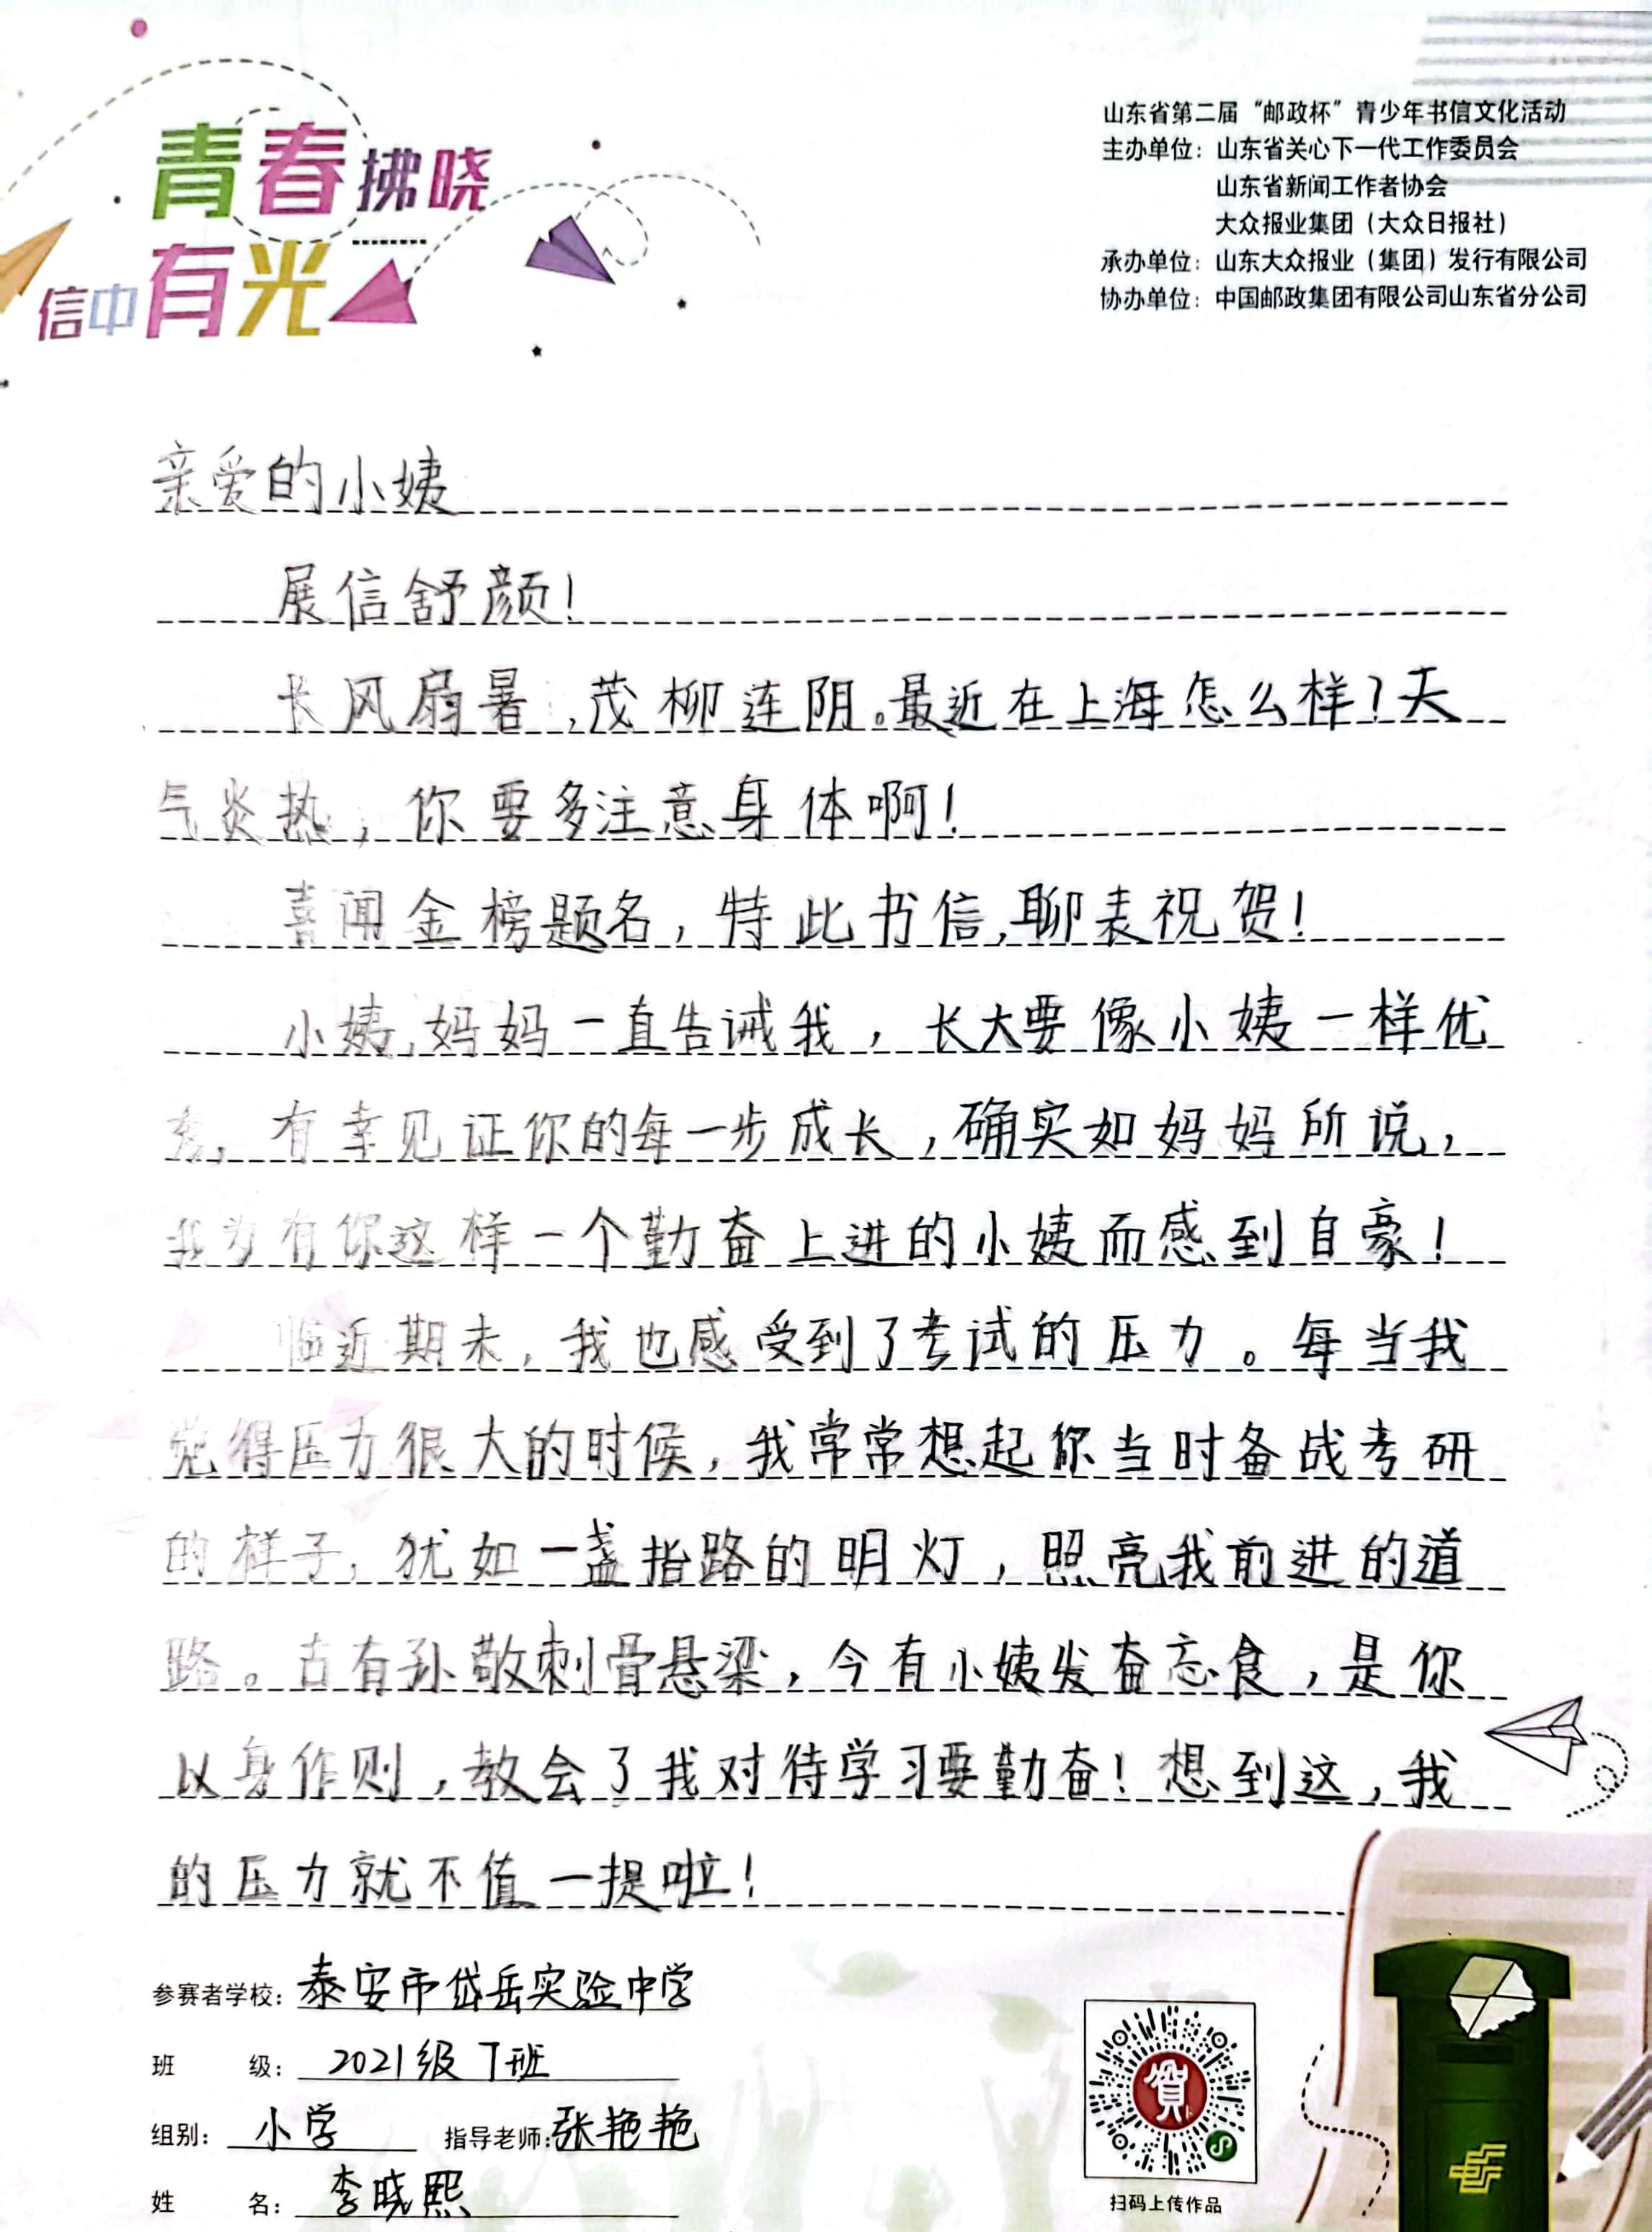 青春拂晓
信中有光
山东省第二届“邮政杯”青少年书信文化活动
主办单位：山东省关心下一代工作委员会
山东省新闻工作者协会
大众报业集团（大众日报社）
承办单位：山东大众报业（集团）发行有限公司
协办单位：中国邮政集团有限公司山东省分公司
亲爱的小姨
展信舒颜！
长风扇暑，茂柳连阴。最近在上海怎么样？天
气炎热，你要多注意身体啊！
喜闻金榜题名，特此书信，聊表祝贺！
小姨，妈妈一直告诫我，长大要像小姨一样优
秀，有幸见证你的每一步成长，确实如妈妈所说，
我为有你这样一个勤奋上进的小姨而感到自豪！
临近期末，我也感受到了考试的压力。每当我
觉得压力很大的时候，我常常想起你当时备战考研
的样子，犹如一盏指路的明灯，照亮我前进的道
路。古有孙敬刺骨悬梁，今有小姨发奋忘食，是你
以身作则，教会了我对待学习要勤奋！想到这，我
的压力就不值一提啦！
参赛者学校：泰安市岱岳实验中学
班 级：2021级7班
组别：小学 指导老师：张艳艳
姓 名：李晓熙
贺
扫码上传作品